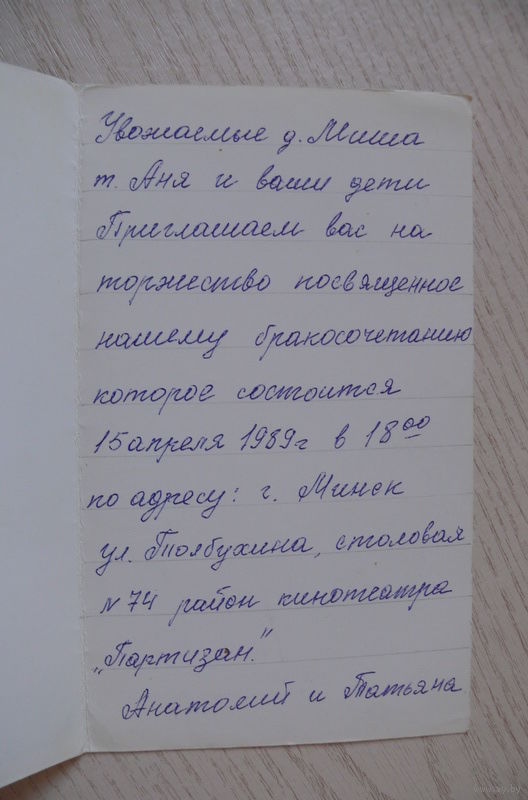 Уважаемые д. Миша
т. Аня и ваши дети
Приглашаем вас на
торжество посвященное
нашему бракосочетанию
которое состоится
15 апреля 1989г в 18⁰⁰
по адресу: г. Минск
ул. Толбухина, столовая
N 74 район кинотеатра
„Партизан."
Анатолий и Татьяна